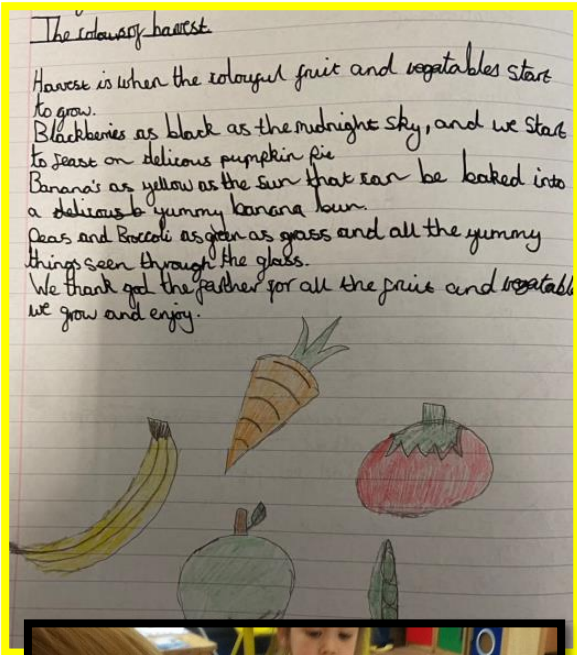 The colours of harvest
Harvest is when the colourful fruit and vegatables start
to grow.
Blackberries as black as the midnight sky, and we start
to feast on delicous pumpkin pie
Banana's as yellow as the sun that can be baked into
a delicous b yummy banana bun.
Peas and Broccoli as green as grass and all the yummy
things seen through the glass.
We thank god the farther for all the fruit and vegatabl
we grow and enjoy.